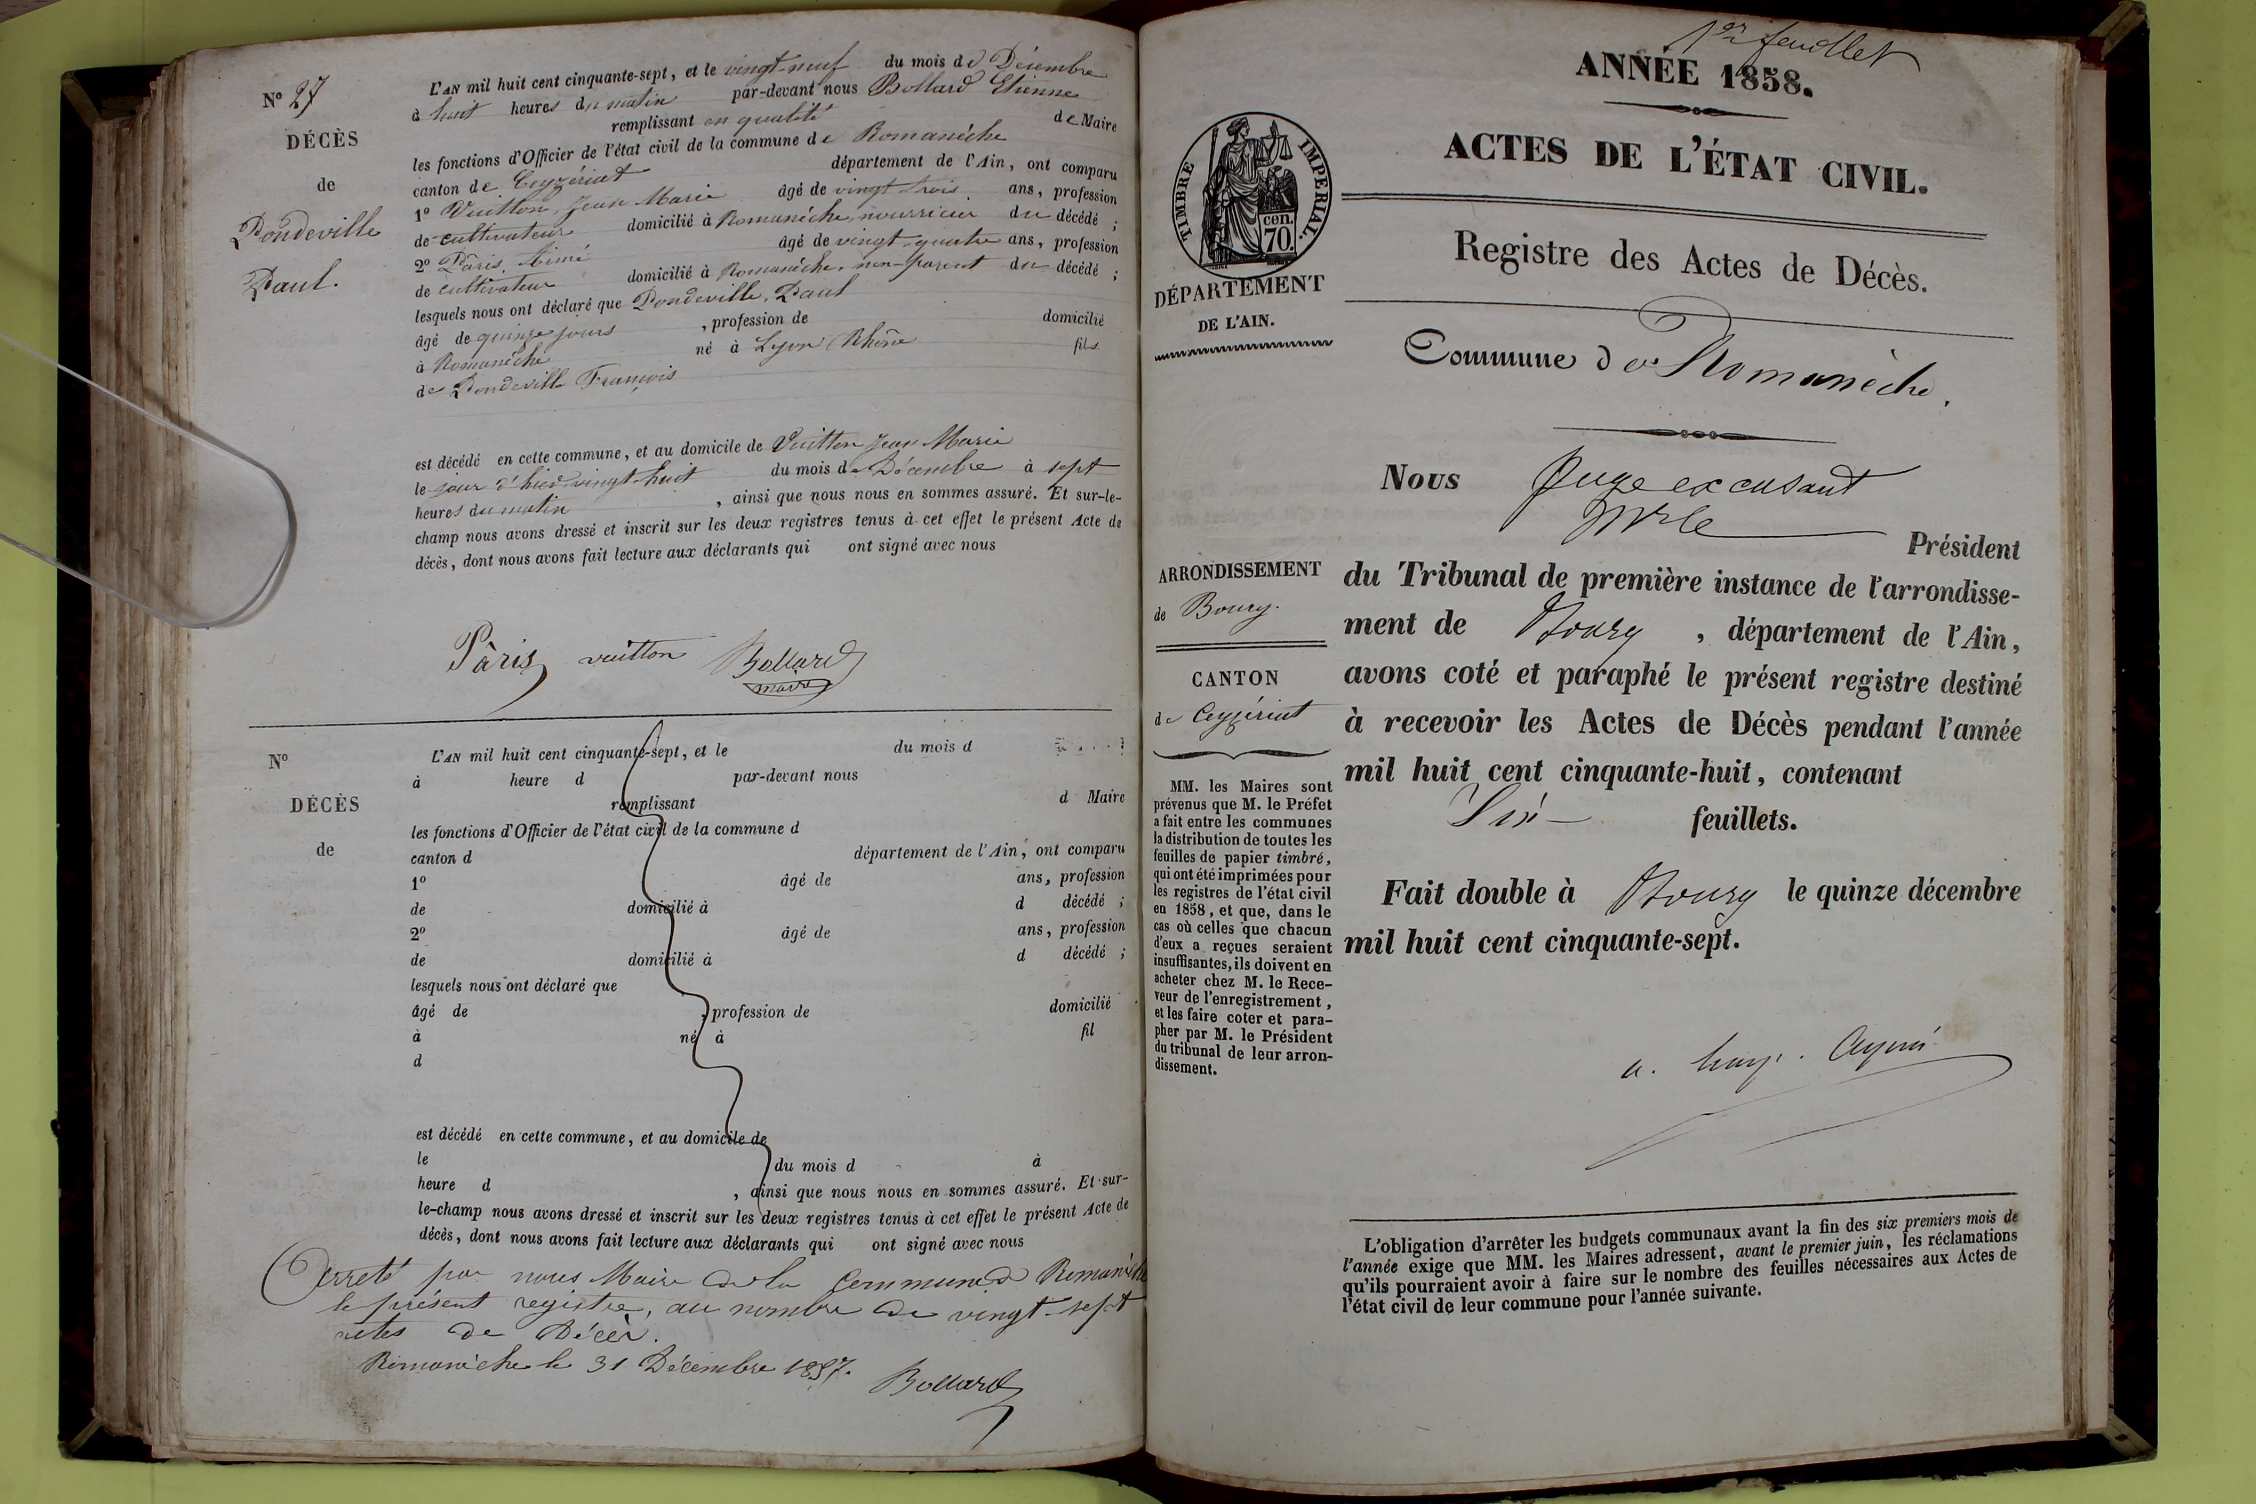 N° 27
DÉCÈS
de
Pondeville
Paul.
L'AN mil huit cent cinquante-sept, et le vingt-neuf du mois de Décembre
à huit heures du matin par-devant nous Bollard Etienne
remplissant en qualité de Maire
les fonctions d'Officier de l'état civil de la commune de Romanèche
canton de Ceyzériat département de l'Ain, ont comparu
1° Vuitton, Jean Marie âgé de vingt trois ans, profession
de cultivateur domicilié à Romanèche, nourricier du décédé ;
2° Pâris, Aimé âgé de vingt-quatre ans, profession
de cultivateur domicilié à Romanèche, non-parent du décédé ;
lesquels nous ont déclaré que Pondeville, Paul
âgé de quinze jours , profession de domicilié
à Romanèche né à Lyon (Rhône fils
de Pondeville François
est décédé en cette commune, et au domicile de Vuitton Jean Marie
le jour d'hier vingt-huit du mois de Décembre à sept
heures du matin , ainsi que nous nous en sommes assuré. Et sur-le-
champ nous avons dressé et inscrit sur les deux registres tenus à cet effet le présent Acte de
décès, dont nous avons fait lecture aux déclarants qui ont signé avec nous
Pâris vuitton Bollard
maire
N°
DÉCÈS
de
L'AN mil huit cent cinquante-sept, et le du mois d
à heure d par-devant nous
remplissant d Maire
les fonctions d'Officier de l'état civil de la commune d
canton d département de l'Ain, ont comparu
1° âgé de ans, profession
de domicilié à d décédé ;
2° âgé de ans, profession
de domicilié à d décédé ;
lesquels nous ont déclaré que
âgé de , profession de domicilié
à né à fil
d
est décédé en cette commune, et au domicile de
le du mois d à
heure d , ainsi que nous nous en sommes assuré. Et sur-
le-champ nous avons dressé et inscrit sur les deux registres tenus à cet effet le présent Acte de
décès, dont nous avons fait lecture aux déclarants qui ont signé avec nous
Arreté par nous Maire de la Commune de Romanèche
le présent registre, au nombre de vingt-sept
actes de Décès.
Romanèche le 31 Décembre 1857.
Bollard
1er feuillet
ANNÉE 1858.
ACTES DE L'ÉTAT CIVIL.
Registre des Actes de Décès.
Commune de Romanèche.
TIMBRE IMPÉRIAL.
cen.
70.
DÉPARTEMENT
DE L'AIN.
ARRONDISSEMENT
de Bourg.
CANTON
de Ceyzériat
MM. les Maires sont
prévenus que M. le Préfet
a fait entre les communes
la distribution de toutes les
feuilles de papier timbré,
qui ont été imprimées pour
les registres de l'état civil
en 1858, et que, dans le
cas où celles que chacun
d'eux a reçues seraient
insuffisantes, ils doivent en
acheter chez M. le Rece-
veur de l'enregistrement,
et les faire coter et para-
pher par M. le Président
du tribunal de leur arron-
dissement.
Nous Juge excusant
Mr le Président
du Tribunal de première instance de l'arrondisse-
ment de Bourg , département de l'Ain,
avons coté et paraphé le présent registre destiné
à recevoir les Actes de Décès pendant l'année
mil huit cent cinquante-huit, contenant
Six feuillets.
Fait double à Bourg le quinze décembre
mil huit cent cinquante-sept.
L'obligation d'arrêter les budgets communaux avant la fin des six premiers mois de
l'année exige que MM. les Maires adressent, avant le premier juin, les réclamations
qu'ils pourraient avoir à faire sur le nombre des feuilles nécessaires aux Actes de
l'état civil de leur commune pour l'année suivante.